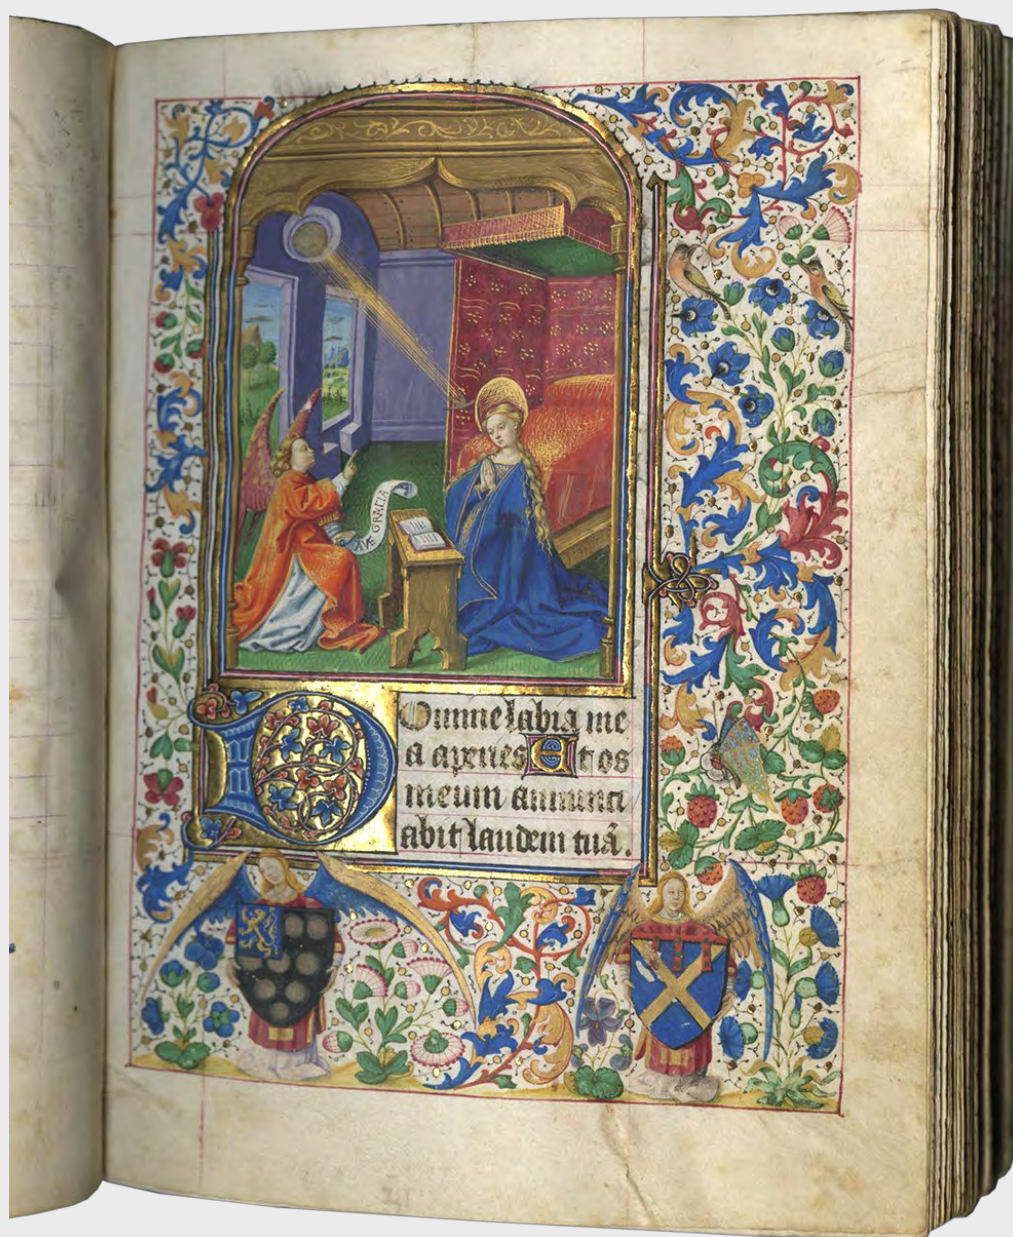 AVE GRACIA
Domine labia me
a aperies Et os
meum annunci
abit laudem tuā.